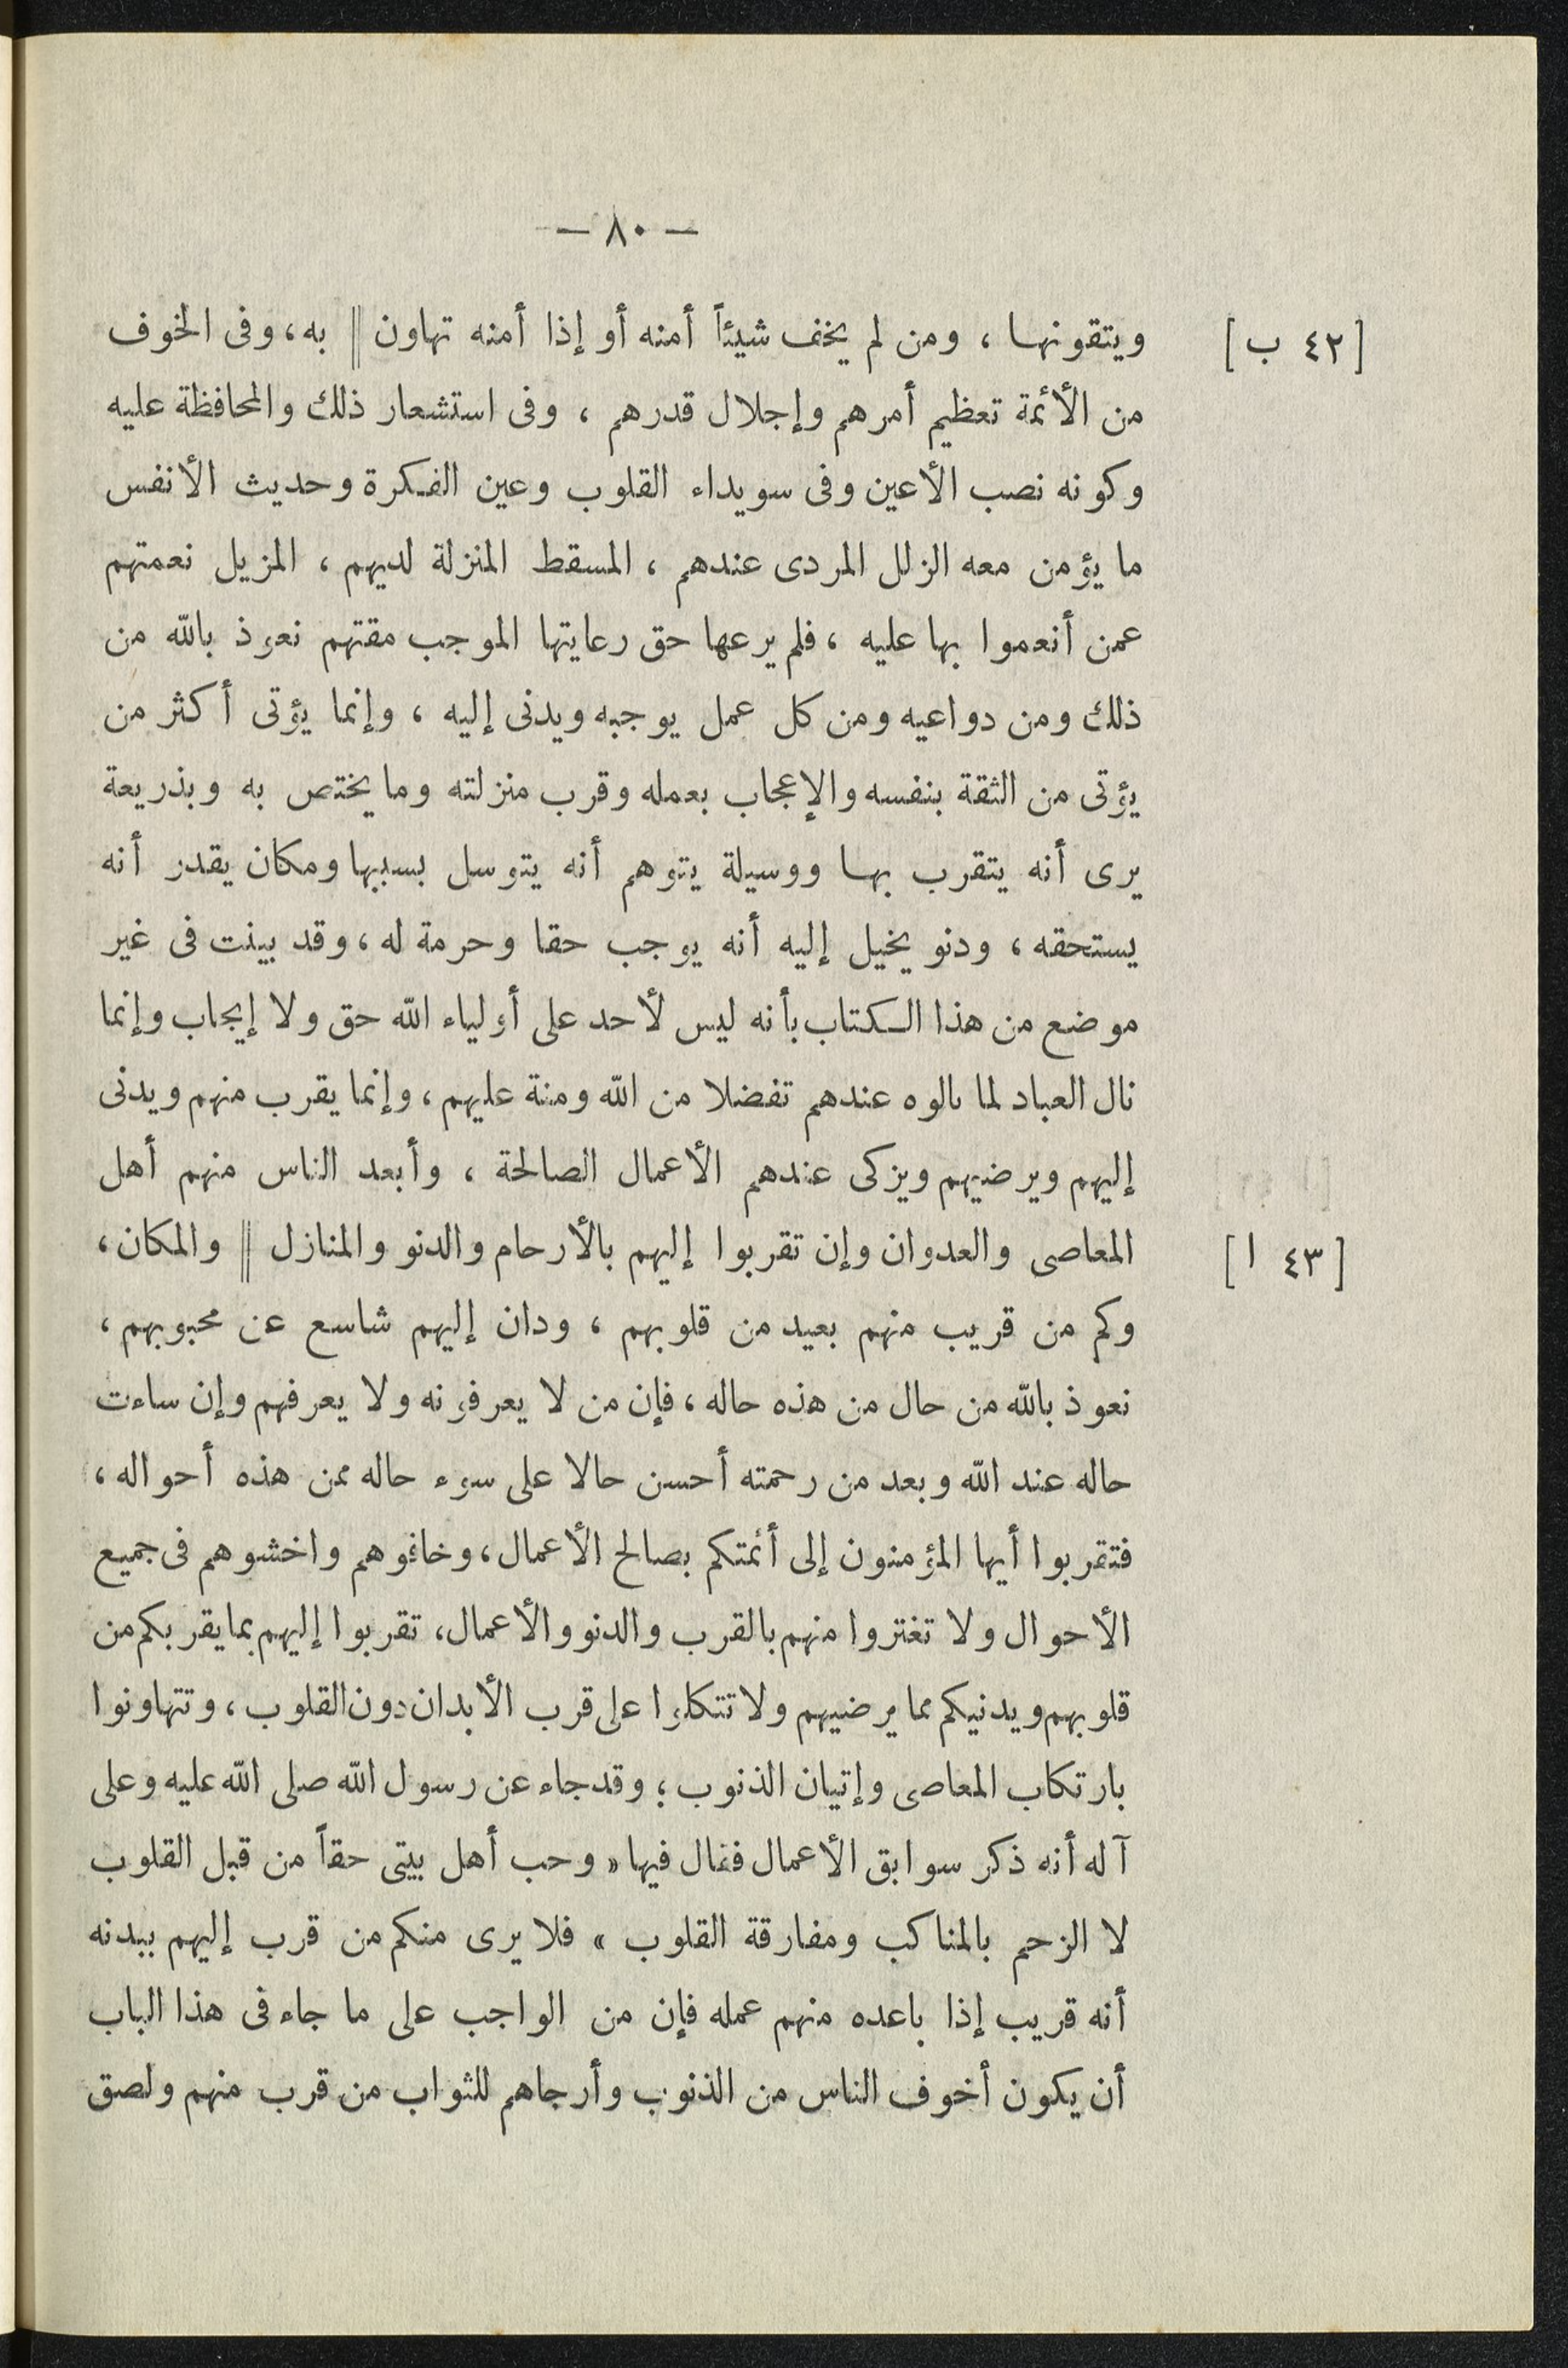 — ٨٠ —
[ ٤٢ ب ]
ويتقونها ، ومن لم يخف شيئاً أمنه أو إذا أمنه تهاون || به ، وفى الخوف
من الأئمة تعظيم أمرهم وإجلال قدرهم ، وفى استشعار ذلك والمحافظة عليه
وكونه نصب الأعين وفى سويداء القلوب وعين الفكرة وحديث الأنفس
ما يؤمن معه الزلل المردى عندهم ، المسقط المنزلة لديهم ، المزيل نعمتهم
عمن أنعموا بها عليه ، فلم يرعها حق رعايتها الموجب مقتهم نعوذ بالله من
ذلك ومن دواعيه ومن كل عمل يوجبه ويدنى إليه ، وإنما يؤتى أكثر من
يؤتى من الثقة بنفسه والإعجاب بعمله وقرب منزلته وما يختص به وبذريعة
يرى أنه يتقرب بها ووسيلة يتوهم أنه يتوسل بسببها ومكان يقدر أنه
يستحقه ، ودنو يخيل إليه أنه يوجب حقا وحرمة له ، وقد بينت فى غير
موضع من هذا الكتاب بأنه ليس لأحد على أولياء الله حق ولا إيجاب وإنما
نال العباد لما نالوه عندهم تفضلا من الله ومنة عليهم ، وإنما يقرب منهم ويدنى
إليهم ويرضيهم ويزكى عندهم الأعمال الصالحة ، وأبعد الناس منهم أهل
[ ٤٣ ا ]
المعاصى والعدوان وإن تقربوا إليهم بالأرحام والدنو والمنازل || والمكان ،
وكم من قريب منهم بعيد من قلوبهم ، ودان إليهم شاسع عن محبوبهم ،
نعوذ بالله من حال من هذه حاله ، فإن من لا يعرفونه ولا يعرفهم وإن ساءت
حاله عند الله وبعد من رحمته أحسن حالا على سوء حاله ممن هذه أحواله ،
فتقربوا أيها المؤمنون إلى أئمتكم بصالح الأعمال ، وخافوهم واخشوهم فى جميع
الأحوال ولا تغتروا منهم بالقرب والدنو والأعمال ، تقربوا إليهم بما يقربكم من
قلوبهم ويدنيكم مما يرضيهم ولا تتكلوا على قرب الأبدان دون القلوب ، وتتهاونوا
بارتكاب المعاصى وإتيان الذنوب ؛ وقد جاء عن رسول الله صلى الله عليه وعلى
آله أنه ذكر سوابق الأعمال فقال فيها « وحب أهل بيتى حقاً من قبل القلوب
لا الزحم بالمناكب ومفارقة القلوب » فلا يرى منكم من قرب إليهم ببدنه
أنه قريب إذا باعده منهم عمله فإن من الواجب على ما جاء فى هذا الباب
أن يكون أخوف الناس من الذنوب وأرجاهم للثواب من قرب منهم ولصق